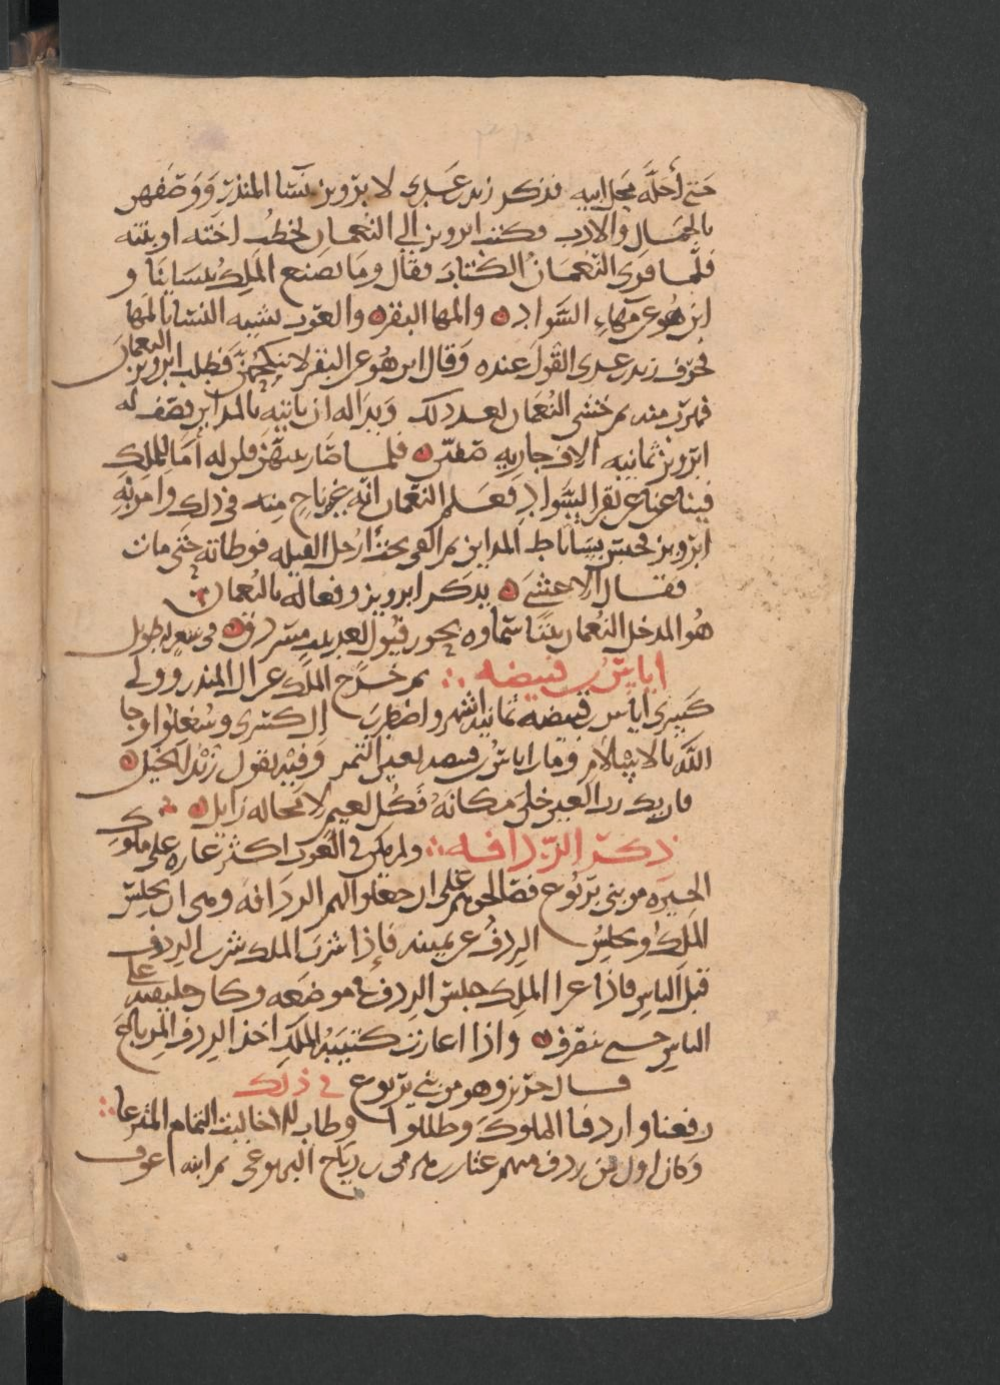 حتى أحله محل ابيه فذكر زيد بن عدى لابرويز نسا المنذر ووصفهن
بالجمال والادب فكتب ابرويز الى النعمان يخطب اخته او بنته
فلما قرى النعمان الكتاب فقال وما يصنع الملك بنساينا و
اين هو عن مهاء السواد والمها البقر والعرب تشبه النسا بالمها
فحرف زيد بن عدى القول عنده وقال اين هو عن البقر لا ينكحهن فطلب ابرويز النعمان
فهرب منه ثم خشى النعمان بعد ذلك وبدا له ان ياتيه بالمداين فصف له
ابرويز ثمانية الاف جارية صفين فلما صار بينهن قلن له أما للملك
فينا غنا عن بقر السواد فعلم النعمان انه غير ناج منه فى ذلك وامر به
ابرويز فحبس بساباط المداين ثم القى تحت ارجل الفيلة فوطاته حتى مات
فقال الاعشى يذكر ابرويز وفعاله بالنعمان
هو المدخل النعمان بيتا سماوه نحور فيول بعد بيت مسردق فى شعر له طويل
اياس بن قبيصه ثم خرج الملك عن ال المنذر وولى
كسرى اياس بن قبيصه ثمانية اشهر واضطرب ال كسرى وشغلوا وجا
الله بالاسلام ومات اياس بن قبيصه بعين التمر وفيه يقول زيد الخيل
فان يك رب العين خلى مكانه فكل نعيم لا محالة زايل
ذكر الردافه ولم يكن فى العرب اكثر غاره على ملوك
الحيره من بنى يربوع فصالحوهم على ان جعلوا لهم الردافه وهى ان يجلس
الملك ويجلس الردف عن يمينه فإذا شرب الملك شرب الردف
قبل الناس فاذا غزا الملك جلس الردف فى موضعه وكان خليفته على
الناس حتى ينصرف واذا اغارت كتيبة الملك اخذ الردف المرباع
قال جرير وهو من بنى يربوع فى ذلك
ربعنا واردفنا الملوك وظللوا وطاب الاحاليب الثمام المنزعا
وكان اول من ردف منهم عتاب بن هرمى بن رياح اليربوعى ثم ابنه عوف